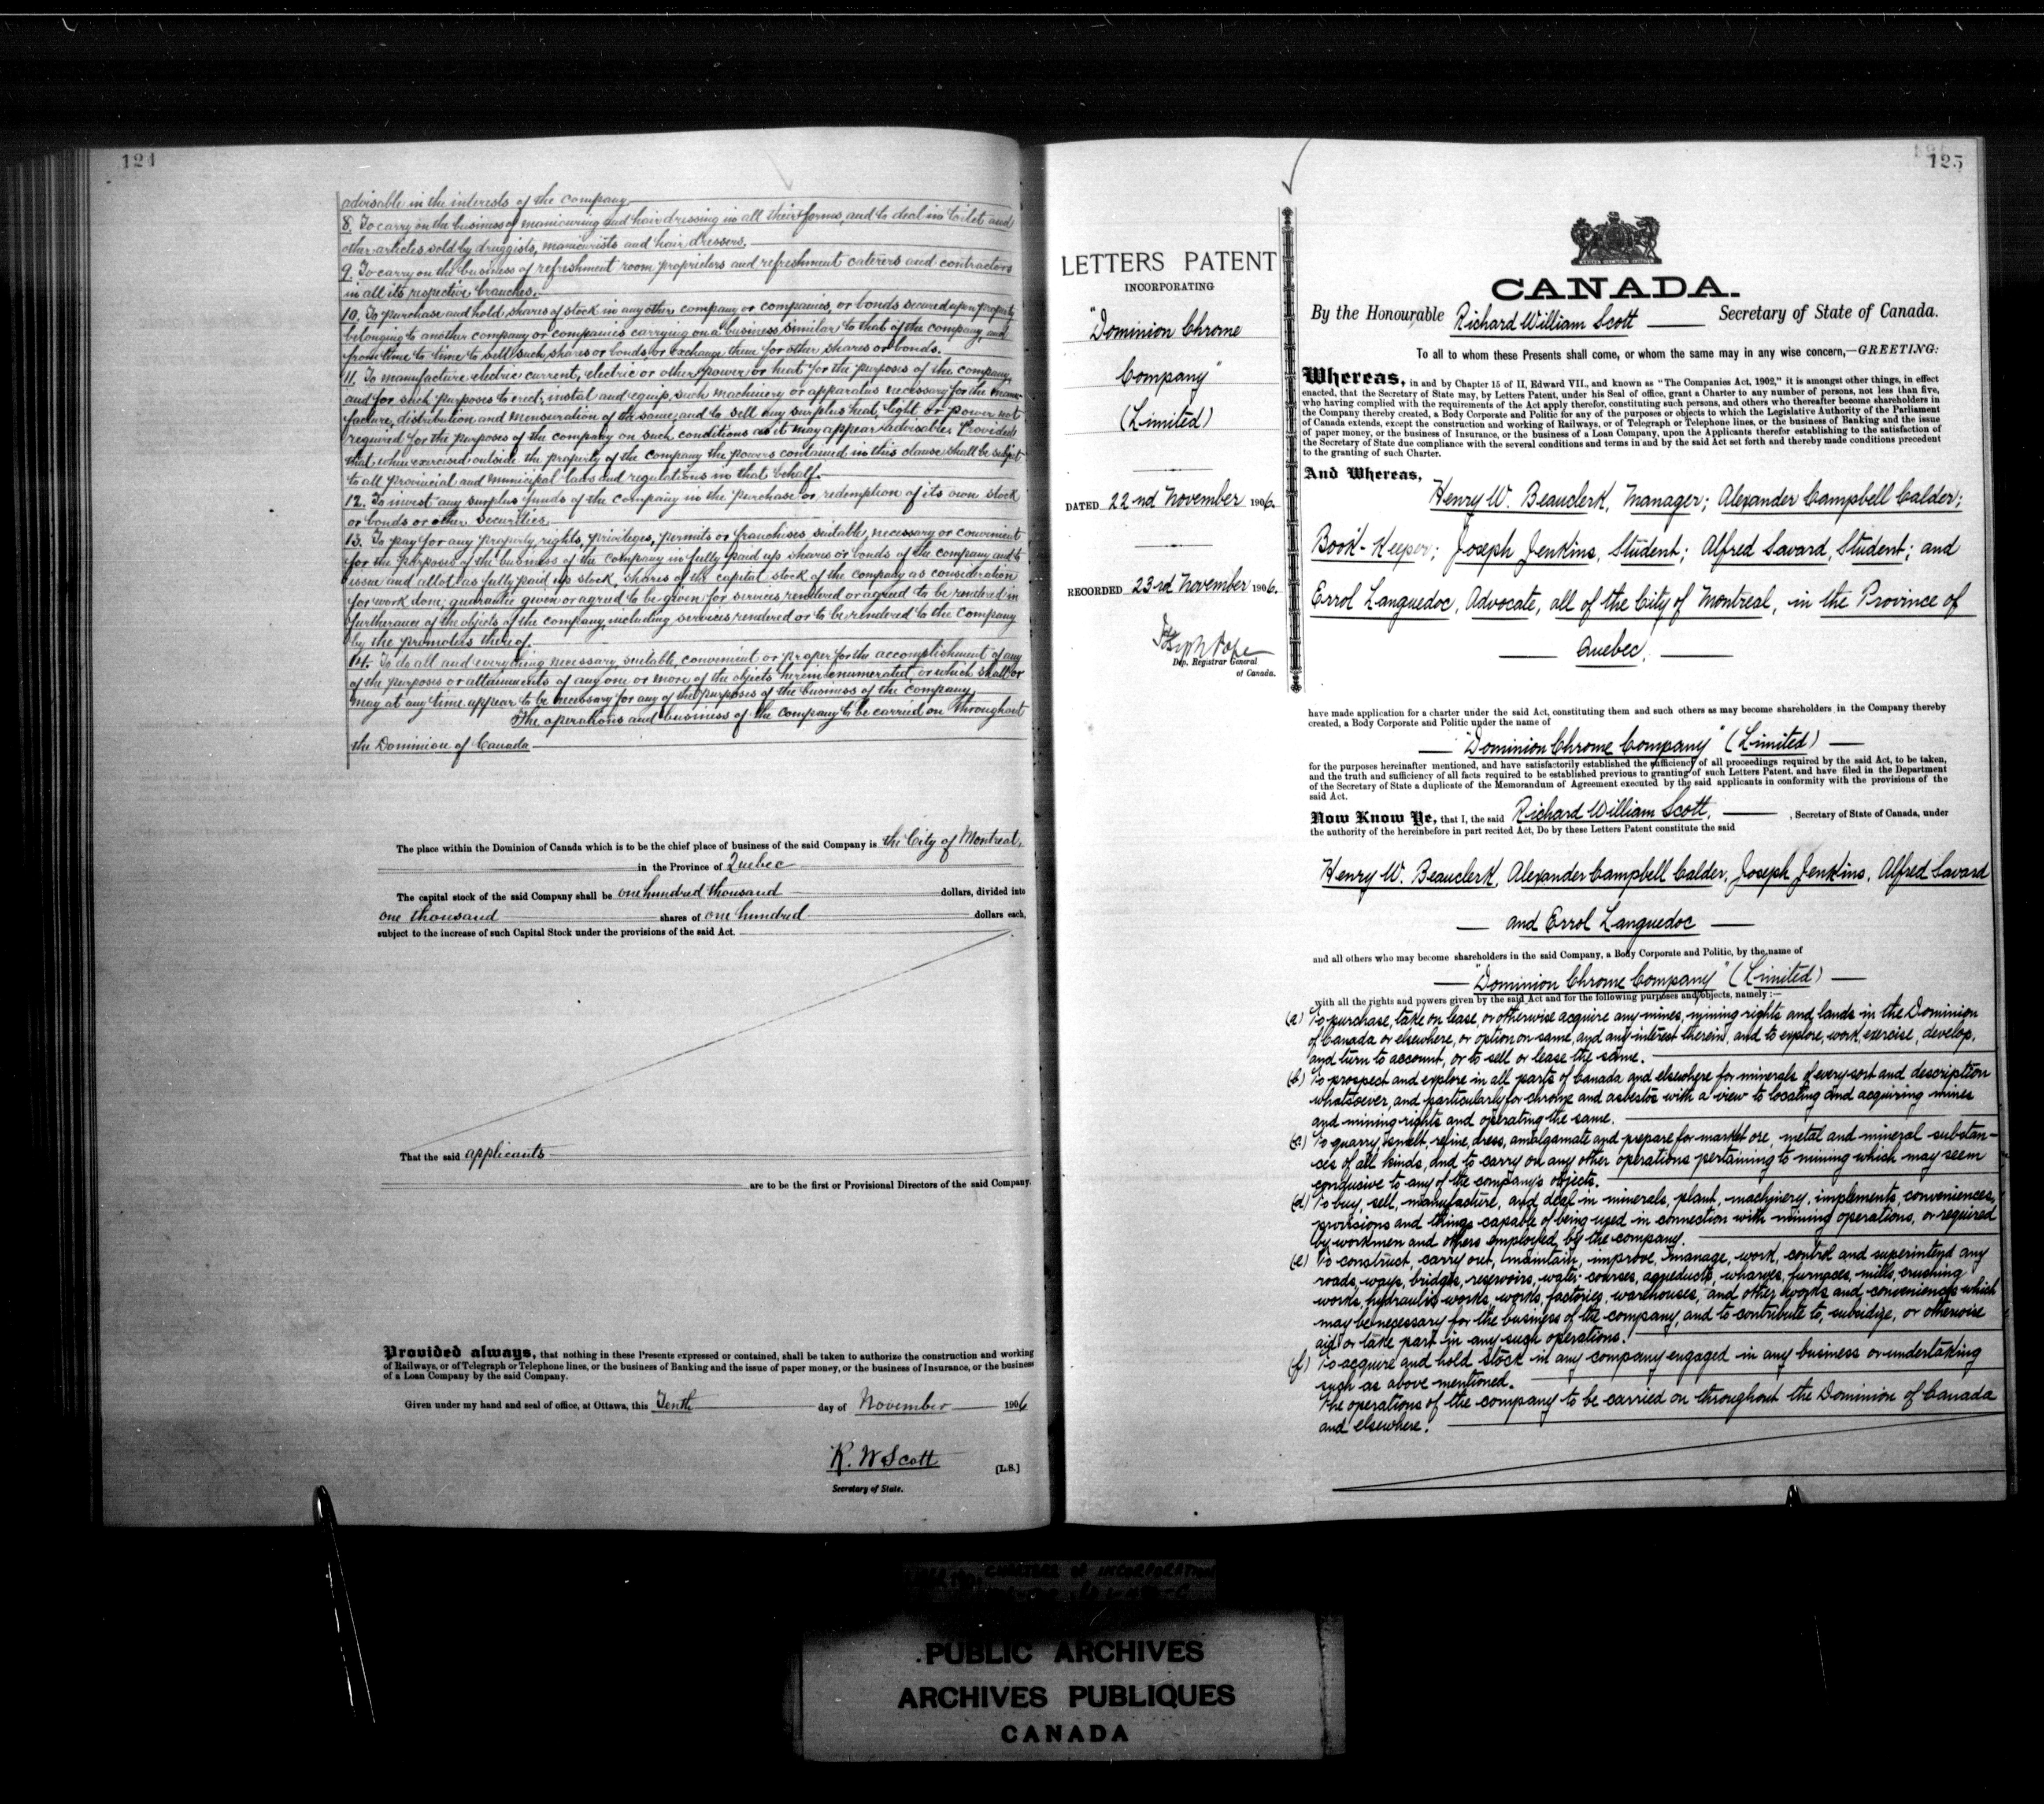 124
advisable in the interests of the company
8. To carry on the business of manicuring and hair dressing in all their forms, and to deal in toilet and
other articles sold by druggists, manicurists and hair dressers.
9. To carry on the business of refreshment room proprietors and refreshment caterers and contractors
in all its respective branches.
10. To purchase and hold shares of stock in any other company or companies, or bonds secured upon property
belonging to another company or companies carrying on a business similar to that of the company, and
from time to time to sell such shares or bonds, or exchange them for other shares or bonds.
11. To manufacture electric current, electric or other power or heat for the purposes of the company,
and for such purposes to erect, instal and equip such machinery or apparatus necessary for the manu-
facture, distribution and mensuration of the same; and to sell any surplus heat, light or power not
required for the purposes of the company on such conditions as it may appear advisable. Provided
that when exercised outside the property of the company the powers contained in this clause shall be subject
to all Provincial and Municipal laws and regulations in that behalf.
12. To invest any surplus funds of the company in the purchase or redemption of its own stock
or bonds or other securities.
13. To pay for any property rights, privileges, permits or franchises suitable, necessary or convenient
for the purposes of the business of the company in fully paid up shares or bonds of the company and to
issue and allot as fully paid up stock, shares of the capital stock of the company as consideration
for work done, guarantee given or agreed to be given for services rendered or agreed to be rendered in
furtherance of the objects of the company including services rendered or to be rendered to the company
by the promoters thereof.
14. To do all and everything necessary, suitable, convenient or proper for the accomplishment of any
of the purposes or attainments of any one or more of the objects herein enumerated, or which shall or
may at any time appear to be necessary for any of the purposes of the business of the company
The operations and business of the company to be carried on throughout
the Dominion of Canada
The place within the Dominion of Canada which is to be the chief place of business of the said Company is the City of Montreal,
in the Province of Quebec
The capital stock of the said Company shall be one hundred thousand dollars, divided into
one thousand shares of one hundred dollars each,
subject to the increase of such Capital Stock under the provisions of the said Act.
That the said applicants
are to be the first or Provisional Directors of the said Company.
Provided always, that nothing in these Presents expressed or contained, shall be taken to authorize the construction and working
of Railways, or of Telegraph or Telephone lines, or the business of Banking and the issue of paper money, or the business of Insurance, or the business
of a Loan Company by the said Company.
Given under my hand and seal of office, at Ottawa, this Tenth day of November 1906
R. W Scott
[L.S.]
Secretary of State.
125
LETTERS PATENT
INCORPORATING
"Dominion Chrome
Company"
(Limited)
DATED 22nd November 1906.
RECORDED 23rd November 1906.
Joseph Pope
Dep. Registrar General
of Canada.
CANADA.
By the Honourable Richard William Scott Secretary of State of Canada.
To all to whom these Presents shall come, or whom the same may in any wise concern,—GREETING:
Whereas, in and by Chapter 15 of II, Edward VII., and known as "The Companies Act, 1902," it is amongst other things, in effect
enacted, that the Secretary of State may, by Letters Patent, under his Seal of office, grant a Charter to any number of persons, not less than five,
who having complied with the requirements of the Act apply therefor, constituting such persons, and others who thereafter become shareholders in
the Company thereby created, a Body Corporate and Politic for any of the purposes or objects to which the Legislative Authority of the Parliament
of Canada extends, except the construction and working of Railways, or of Telegraph or Telephone lines, or the business of Banking and the issue
of paper money, or the business of Insurance, or the business of a Loan Company, upon the Applicants therefor establishing to the satisfaction of
the Secretary of State due compliance with the several conditions and terms in and by the said Act set forth and thereby made conditions precedent
to the granting of such Charter.
And Whereas,
Henry W. Beauclerk, Manager; Alexander Campbell Calder;
Book-Keeper; Joseph Jenkins, Student; Alfred Savard, Student; and
Errol Languedoc, Advocate, all of the City of Montreal, in the Province of
Quebec,
have made application for a charter under the said Act, constituting them and such others as may become shareholders in the Company thereby
created, a Body Corporate and Politic under the name of
"Dominion Chrome Company" (Limited)
for the purposes hereinafter mentioned, and have satisfactorily established the sufficiency of all proceedings required by the said Act, to be taken,
and the truth and sufficiency of all facts required to be established previous to granting of such Letters Patent, and have filed in the Department
of the Secretary of State a duplicate of the Memorandum of Agreement executed by the said applicants in conformity with the provisions of the
said Act.
Now Know Ye, that I, the said Richard William Scott, , Secretary of State of Canada, under
the authority of the hereinbefore in part recited Act, Do by these Letters Patent constitute the said
Henry W. Beauclerk, Alexander Campbell Calder, Joseph Jenkins, Alfred Savard
and Errol Languedoc
and all others who may become shareholders in the said Company, a Body Corporate and Politic, by the name of
"Dominion Chrome Company" (Limited)
with all the rights and powers given by the said Act and for the following purposes and objects, namely:—
(a) To purchase, take on lease, or otherwise acquire any mines, mining rights and lands in the Dominion
of Canada or elsewhere, or option on same, and any interest therein, and to explore, work, exercise, develop,
and turn to account, or to sell or lease the same.
(b) To prospect and explore in all parts of Canada and elsewhere for minerals of every sort and description
whatsoever, and particularly for chrome and asbestos with a view to locating and acquiring mines
and mining rights and operating the same.
(c) To quarry, smelt, refine, dress, amalgamate and prepare for market ore, metal and mineral substan-
ces of all kinds, and to carry on any other operations pertaining to mining which may seem
conducive to any of the company's objects.
(d) To buy, sell, manufacture, and deal in minerals, plant, machinery, implements, conveniences,
provisions and things capable of being used in connection with mining operations, or required
by workmen and others employed by the company.
(e) To construct, carry out, maintain, improve, manage, work, control and superintend any
roads, ways, bridges, reservoirs, water courses, aqueducts, wharves, furnaces, mills, crushing
works, hydraulic works, works, factories, warehouses, and other works and conveniences which
may be necessary for the business of the company, and to contribute to, subsidize, or otherwise
aid or take part in any such operations.
(f) To acquire and hold stock in any company engaged in any business or undertaking
such as above mentioned.
The operations of the company to be carried on throughout the Dominion of Canada
and elsewhere.
CHARTERS OF INCORPORATION
PUBLIC ARCHIVES
ARCHIVES PUBLIQUES
CANADA